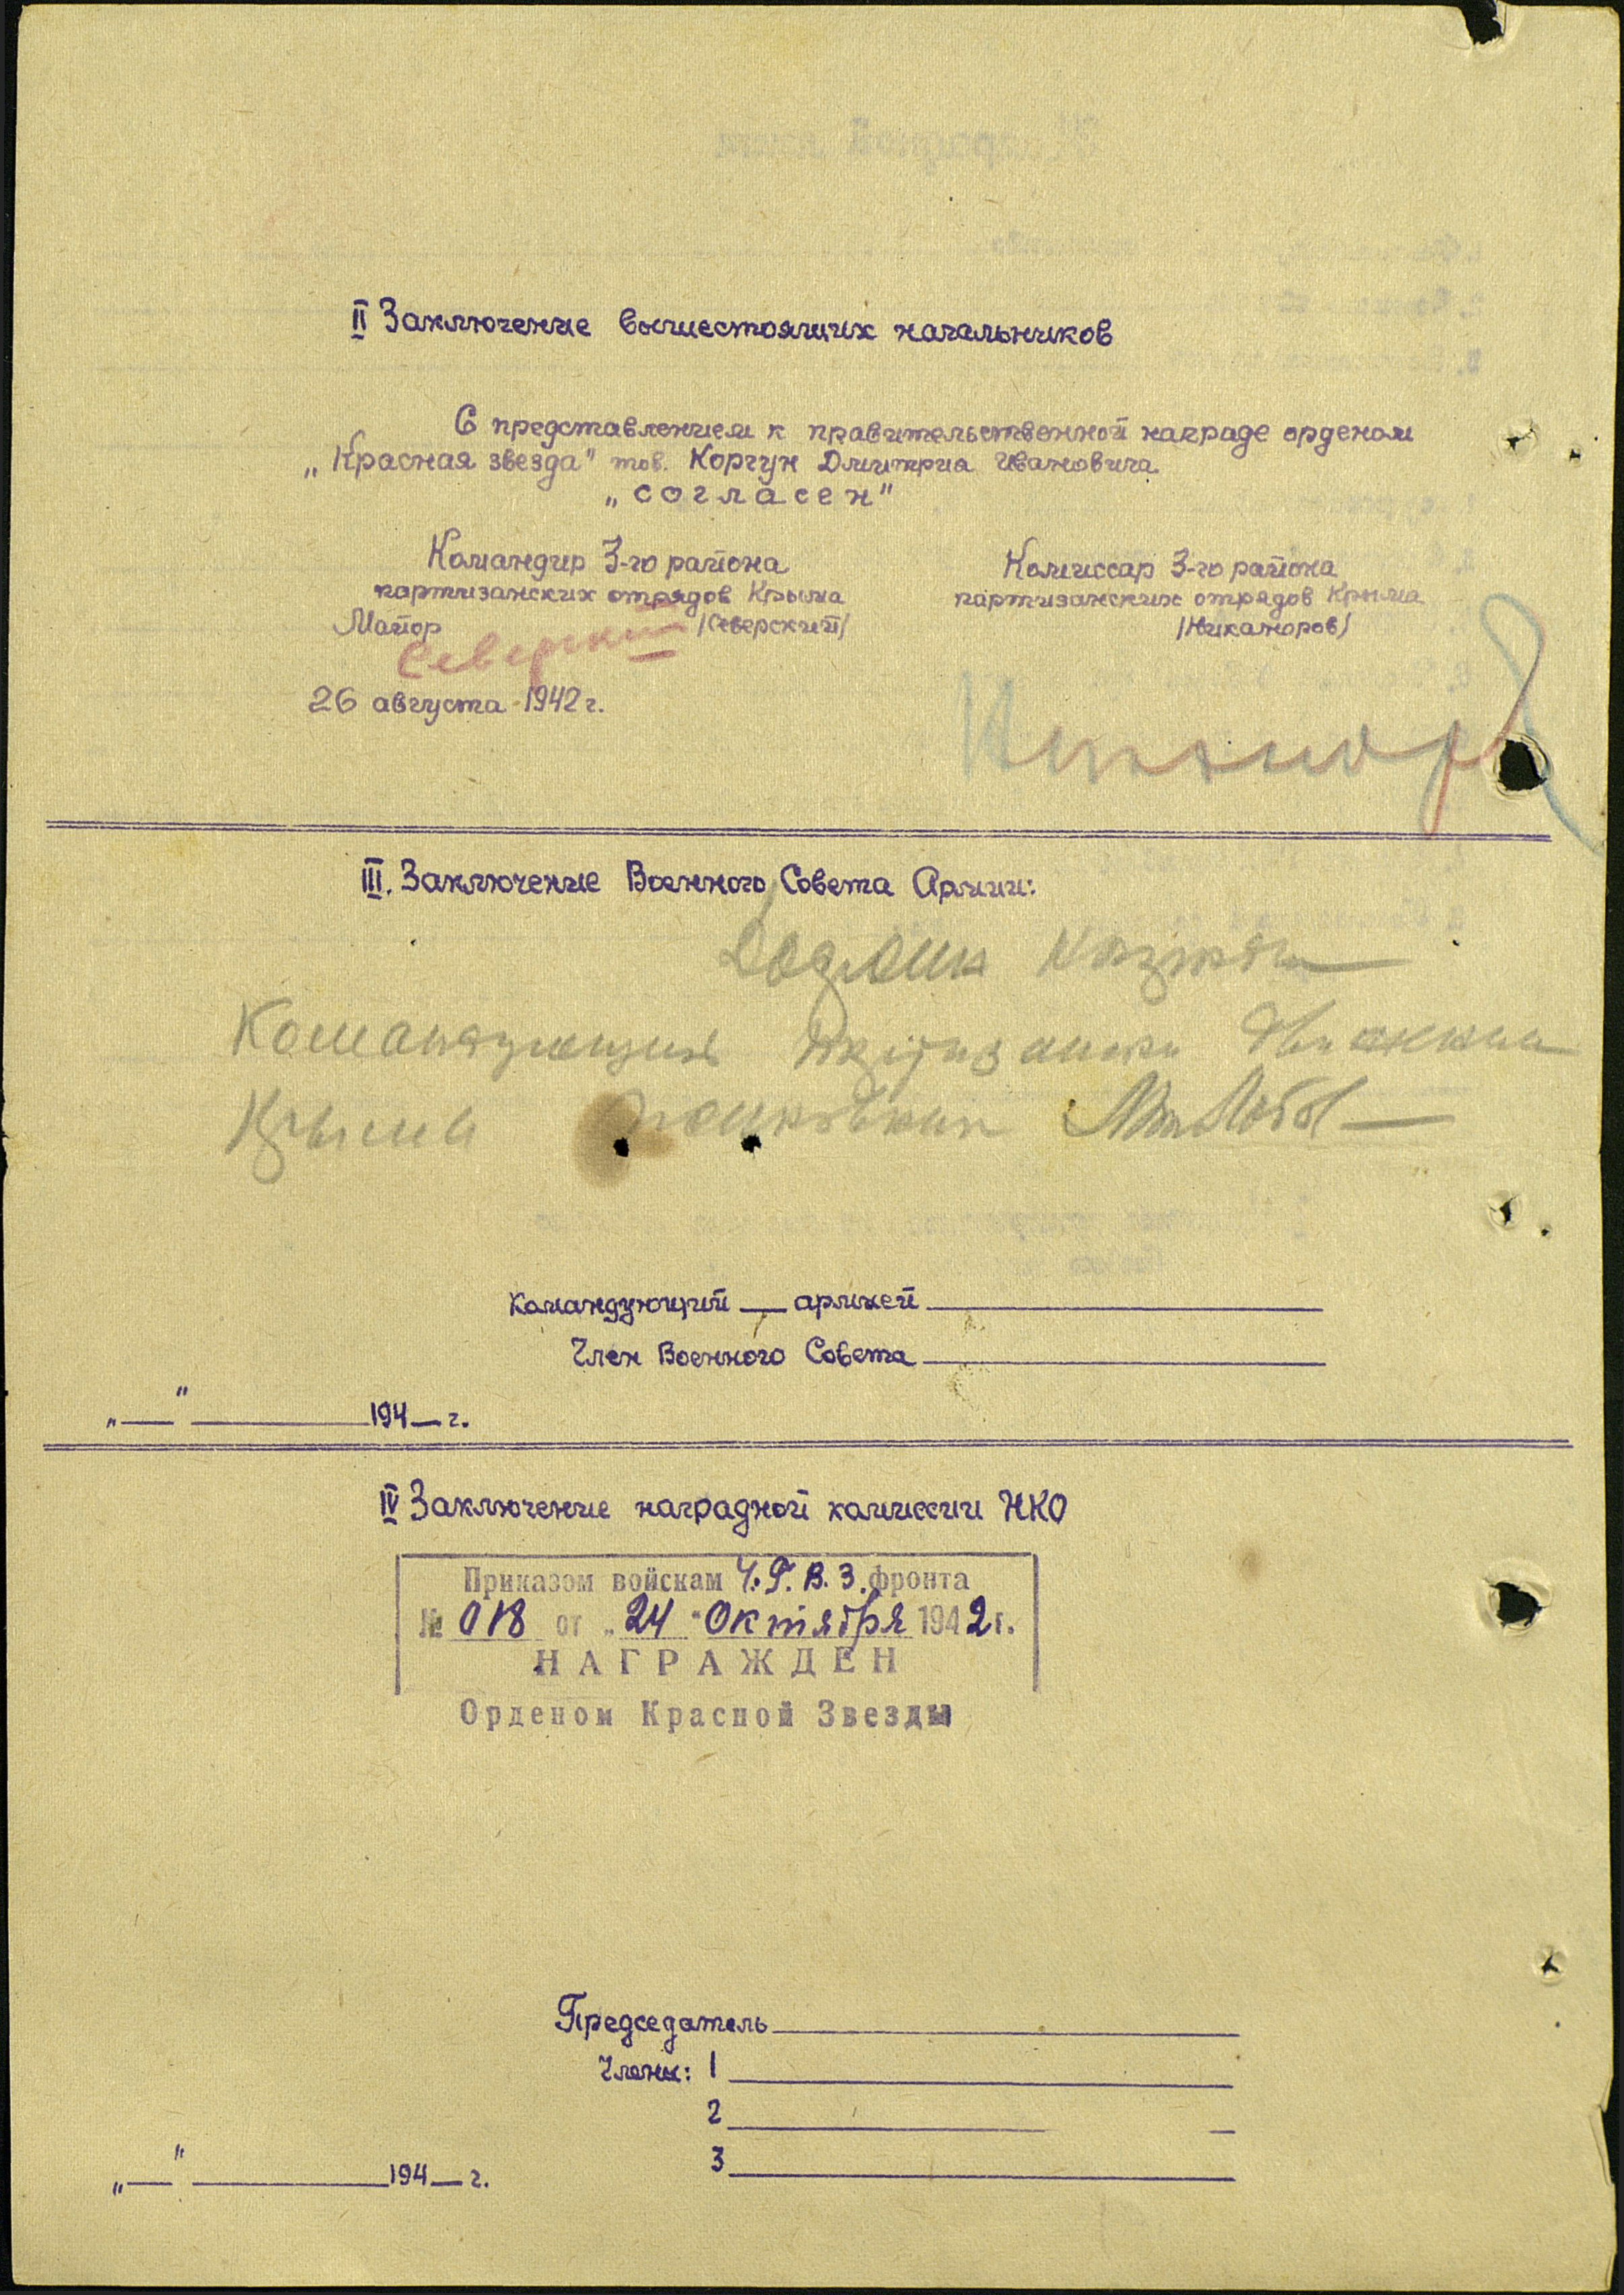 II Заключение вышестоящих начальников
С представлением к правительственной награде орденом
„Красная звезда" тов. Корчун Дмитрия Ивановича
„согласен"
Командир 3-го района
партизанских отрядов Крыма
Майор /Северский/
Северский
26 августа 1942 г.
Комиссар 3-го района
партизанских отрядов Крыма
/Никаноров/
Никаноров
III. Заключение Военного Совета Армии:
Достоин награды
Командующий партизанским движением
Крыма полковник
Командующий ___ армией
Член Военного Совета
„___" ___ 194_ г.
IV Заключение наградной комиссии НКО
Приказом войскам Ч.Г.В.З. фронта
№ 018 от „24" Октября 1942 г.
НАГРАЖДЕН
Орденом Красной Звезды
Председатель
Члены: 1
2
3
„___" ___ 194_ г.